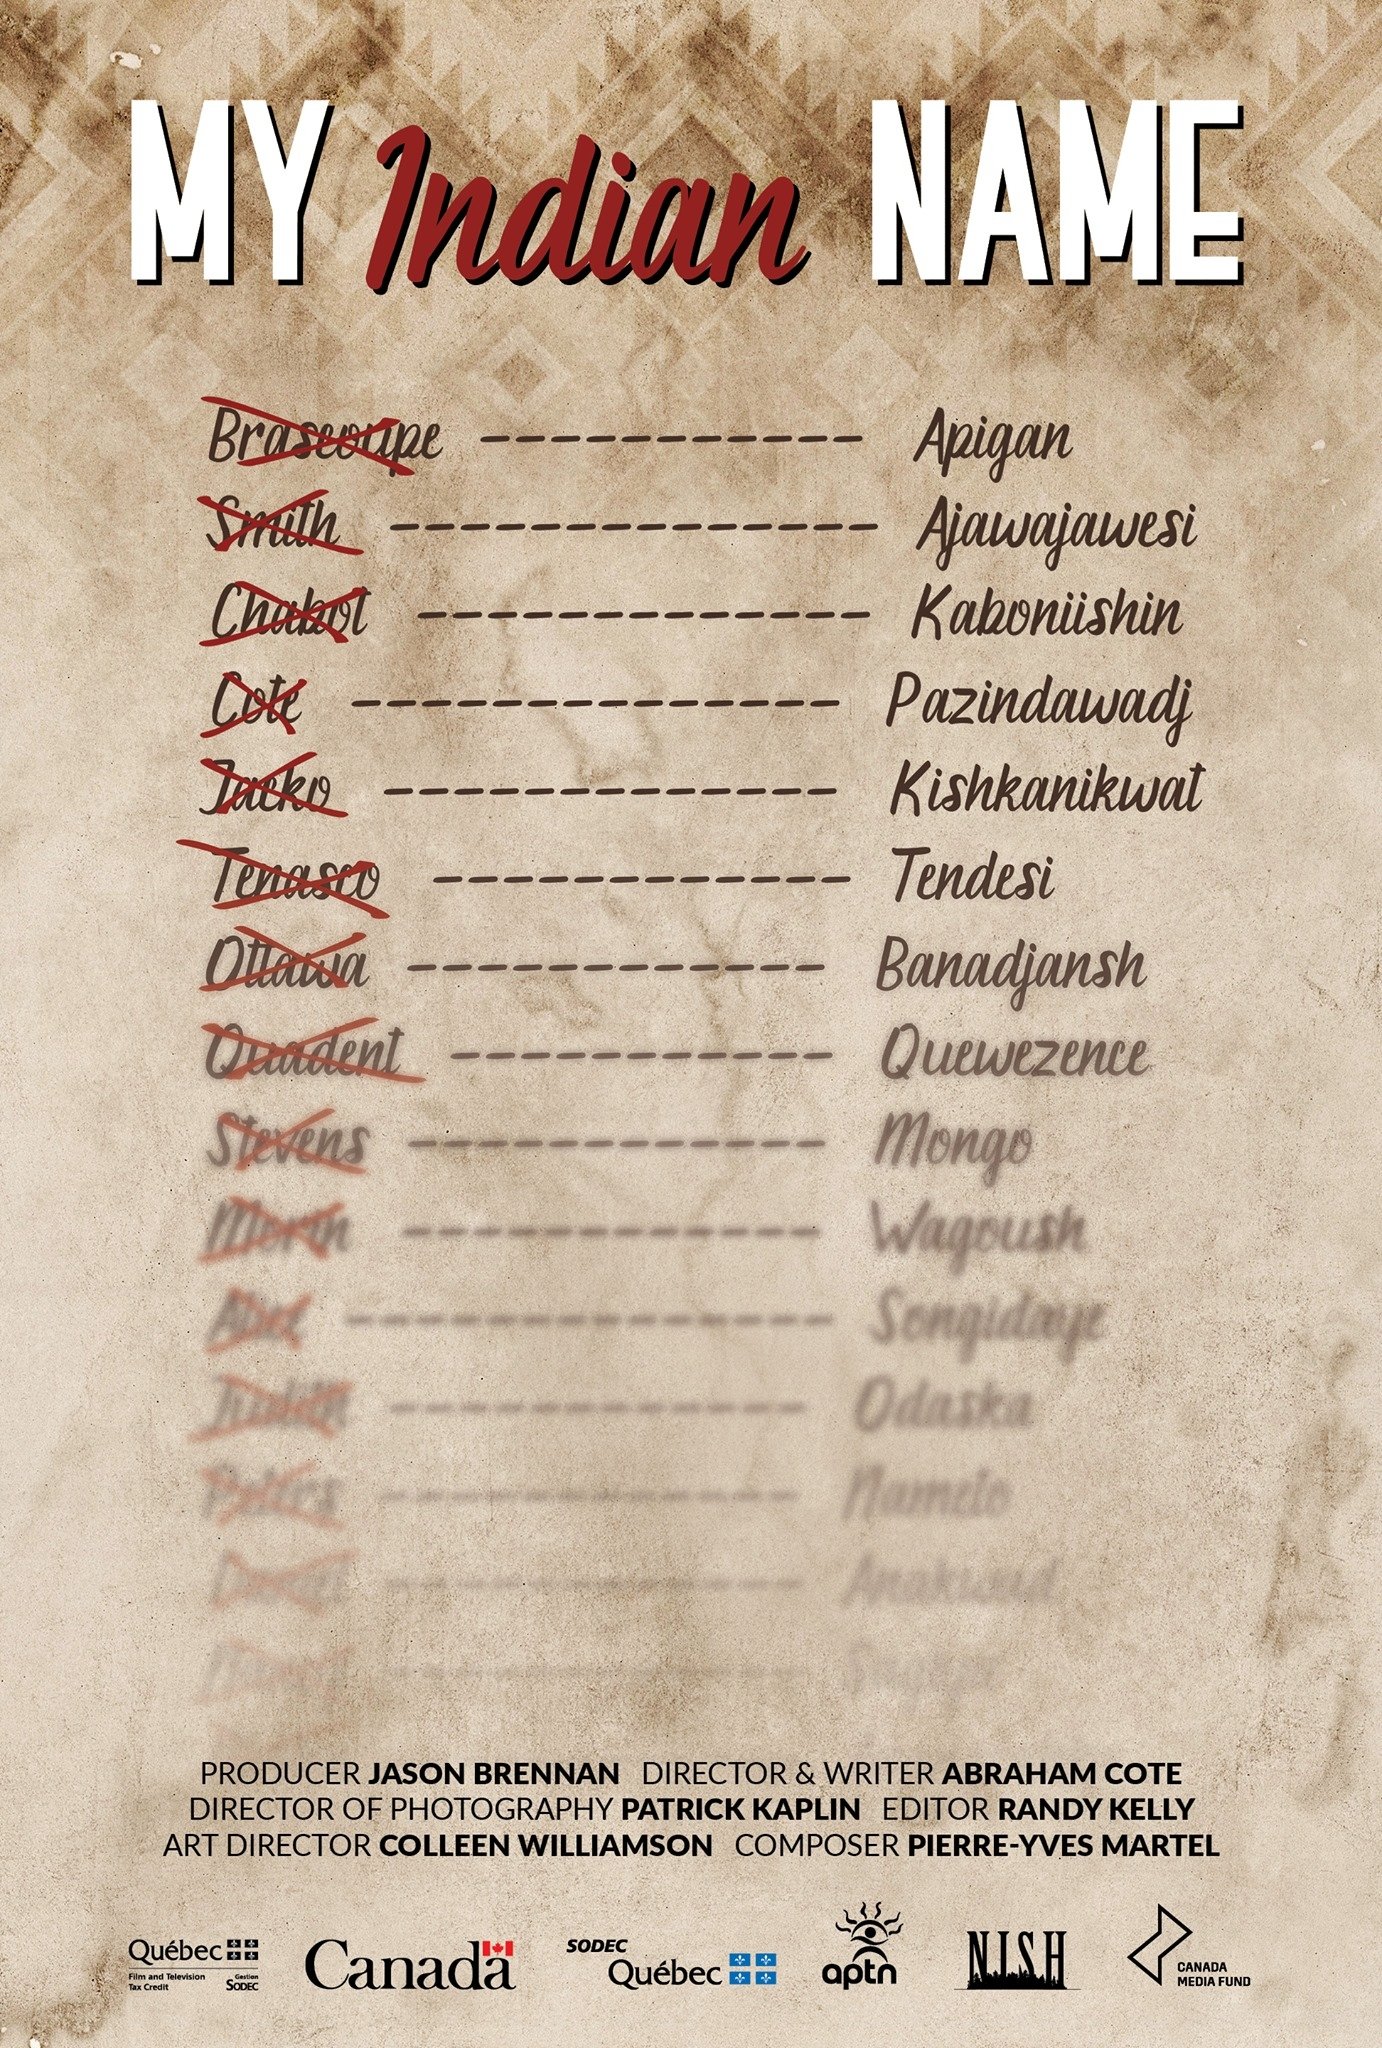 MY Indian NAME
Brascoupe ------------ Apigan
Smith -------------- Ajawajawesi
Chabot ------------- Kaboniishin
Cote -------------- Pazindawadj
Jacko ------------- Kishkanikwat
Tenasco ------------ Tendesi
Ottawa ------------ Banadjansh
Quadent ----------- Quewezence
Stevens ------------ Mongo
Morin ------------ Wagoush
-------------- Songidaye
------------ Odaska
------------ Nameto
PRODUCER JASON BRENNAN DIRECTOR & WRITER ABRAHAM COTE
DIRECTOR OF PHOTOGRAPHY PATRICK KAPLIN EDITOR RANDY KELLY
ART DIRECTOR COLLEEN WILLIAMSON COMPOSER PIERRE-YVES MARTEL
Québec
Film and Television Tax Credit
Gestion SODEC
Canada
SODEC
Québec
aptn
NISH
CANADA
MEDIA FUND